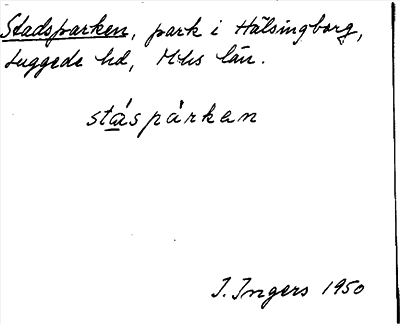 Stadsparken, park i Hälsingborg,
Luggede hd, Mhs län.
stáspàrken
I. Ingers 1950